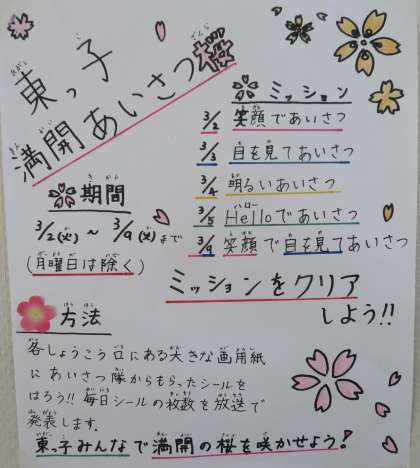 東っ子
満開あいさつ桜
ミッション
3/2 笑顔であいさつ
3/3 目を見てあいさつ
3/4 明るいあいさつ
3/5 Helloであいさつ
3/9 笑顔で目を見てあいさつ
期間
3/2(火)~3/9(火)まで
(月曜日は除く)
ミッションをクリア
しよう!!
方法
各しょうこう口にある大きな画用紙
にあいさつ隊からもらったシールを
はろう!!毎日シールの枚数を放送で
発表します。
東っ子みんなで満開の桜を咲かせよう!